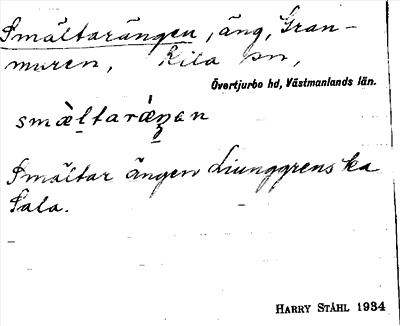 Smältarängen, äng, Gran-
muren, Kila sn,
Övertjurbo hd, Västmanlands län.
smæ̀ltaráŋən
Smältar ängen Ljunggrenska
Sala.
HARRY STÅHL 1934